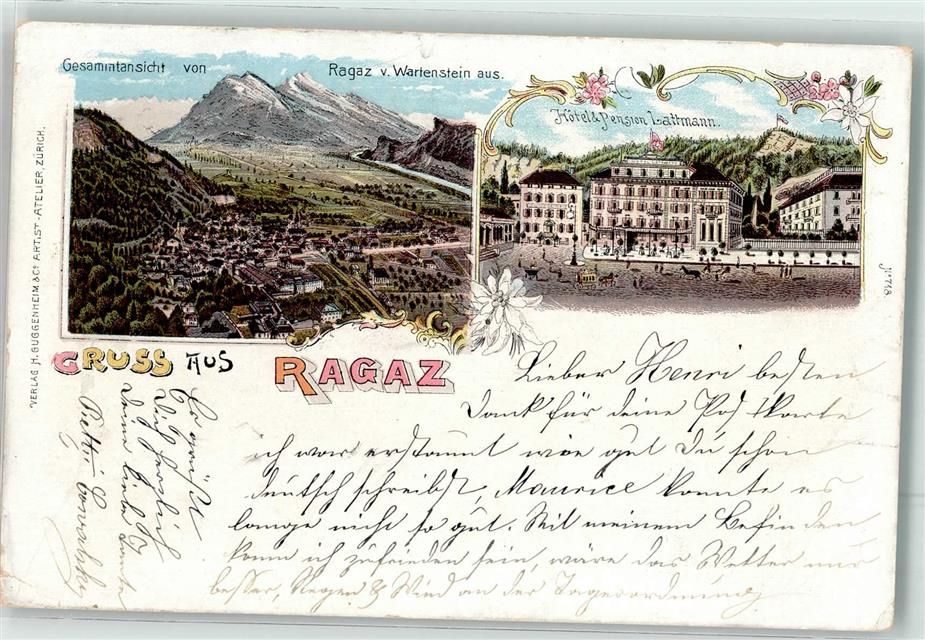 Gesammtansicht von Ragaz v. Wartenstein aus.
Hôtel & Pension Lattmann.
VERLAG H. GUGGENHEIM & Co ARTIST-ATELIER, ZÜRICH.
No 718
GRUSS AUS RAGAZ
Lieber Henri besten
Dank für deine Postkarte
ich war erstaunt wie gut Du schon
deutsch schreibst, Maurice konnte es
lange nicht so gut. Mit meinem Befinden
kann ich zufrieden sein, wäre das Wetter nur
besser, Regen & Wind an der Tagesordnung
Es grüßt
Dich herzlich
deine liebe Tante